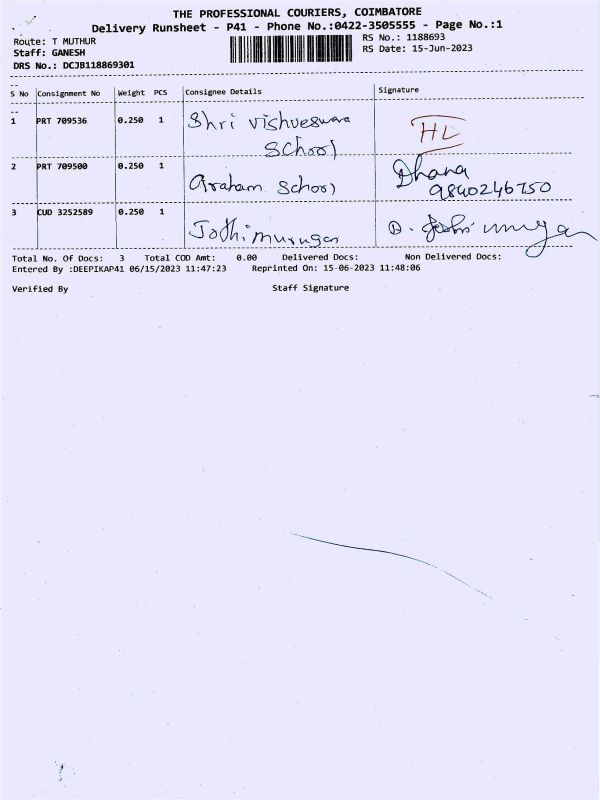 THE PROFESSIONAL COURIERS, COIMBATORE
Delivery Runsheet - P41 - Phone No.:0422-3505555 - Page No.:1
Route: T MUTHUR
RS No.: 1188693
Staff: GANESH
RS Date: 15-Jun-2023
DRS No.: DCJB118869301
S No Consignment No Weight PCS Consignee Details Signature
1 PRT 709536 0.250 1 Shri vishveswara School HL
2 PRT 709500 0.250 1 School Dhana 9840246750
3 CUD 3252589 0.250 1 Jothimurugan
Total No. Of Docs: 3 Total COD Amt: 0.00 Delivered Docs: Non Delivered Docs:
Entered By :DEEPIKAP41 06/15/2023 11:47:23 Reprinted On: 15-06-2023 11:48:06
Verified By Staff Signature